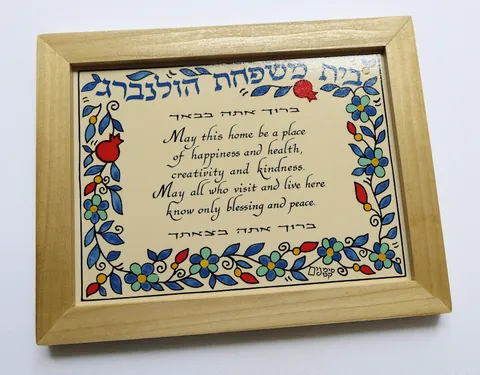 בית משפחת הולנברג
ברוך אתה בבאך
May this home be a place
of happiness and health,
creativity and kindness.
May all who visit and live here
know only blessing and peace.
ברוך אתה בצאתך